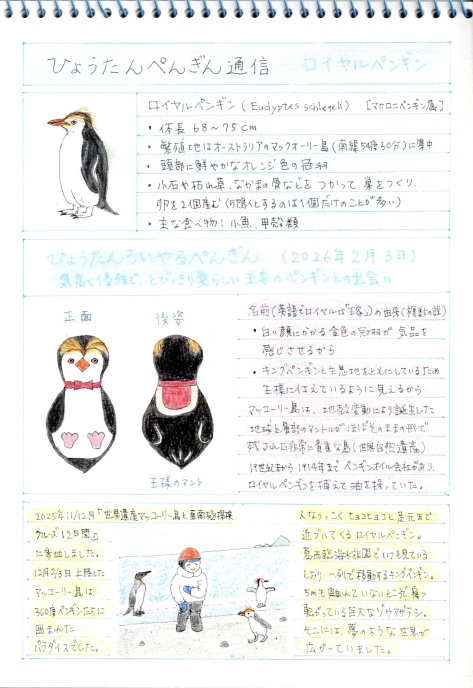 ひょうたんぺんぎん通信 ロイヤルペンギン
ロイヤルペンギン(Eudyptes schlegeli) [マカロニペンギン属]
・体長 68〜75cm
・繁殖地はオーストラリアのマックオーリー島(南緯54度30分)に集中
・頭部に鮮やかなオレンジ色の冠羽
・小石や枯れ草、なかまの骨などを つかって 巣をつくり、
卵を2個産む(孵化するのは1個だけのことが多い)
・主な食べ物:小魚、甲殻類
ひょうたんろいやるぺんぎん (2026年2月3日)
気高く優雅で、とびっきり愛らしい 王家のペンギンとの出会い
正面 後姿
王様のマント
名前(英語でロイヤルは「王家」)の由来(複数の説)
・白い顔にかかる金色の冠羽が 気品を
感じさせるから
・キングペンギンと生息地をともにしているため
王様に仕えているように見えるから
マッコーリー島は、地殻変動により誕生した
地球上層部のマントルがほぼそのままの形で
残された非常に貴重な島(世界自然遺産)
19世紀末から1914年まで ペンギンオイル会社があり、
ロイヤルペンギンを捕えて油を採っていた。
2025年11/12月「世界遺産マッコーリー島と亜南極探検
クルーズ12日間」
に参加しました。
12月2/3日 上陸した
マッコーリー島は、
360度ペンギンたちに
囲まれた
パラダイスでした。
人なつっこく ヒョコヒョコと 足元まで
近づいてくる ロイヤルペンギン。
葛西臨海水族園でいつも見ている
とおり 一列で移動するキングペンギン。
5mも離れていないところで 寝
転がっている巨大なゾウアザラシ。
そこには、夢のような世界が
広がっていました。